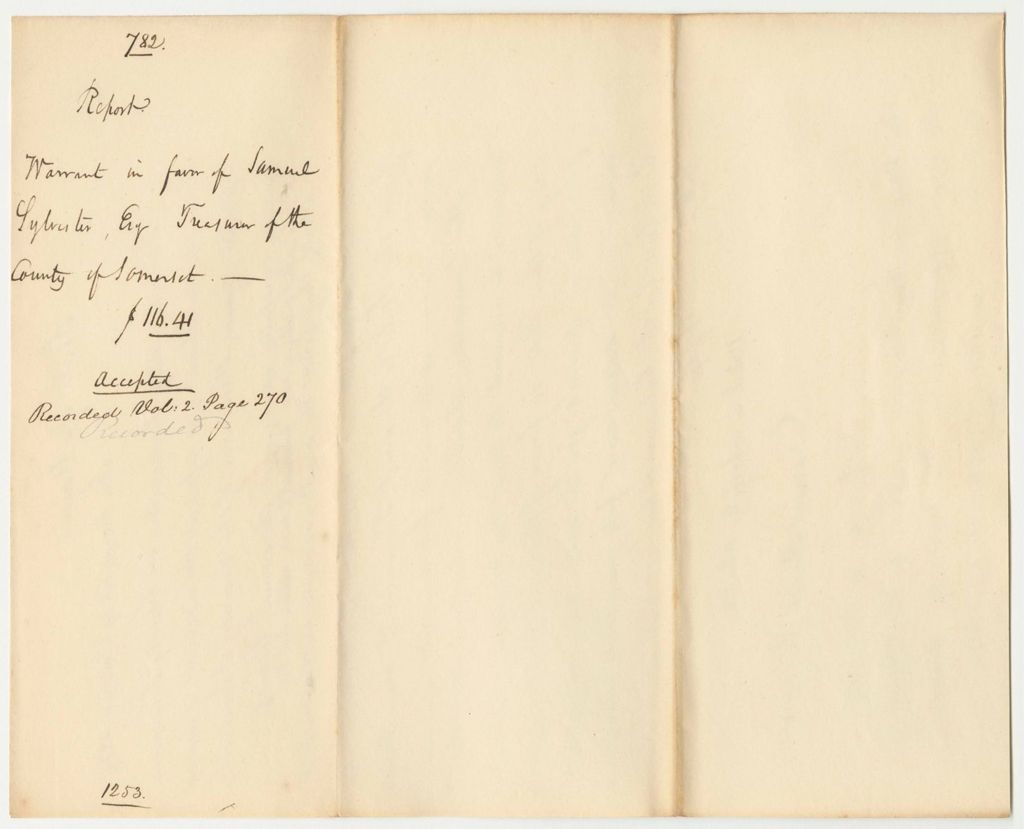 782.
Report
Warrant in favor of Samuel
Sylvester, Esq Treasurer of the
County of Somerset. —
$ 116.41
Accepted
Recorded Vol: 2. Page 270
Recorded
1253.